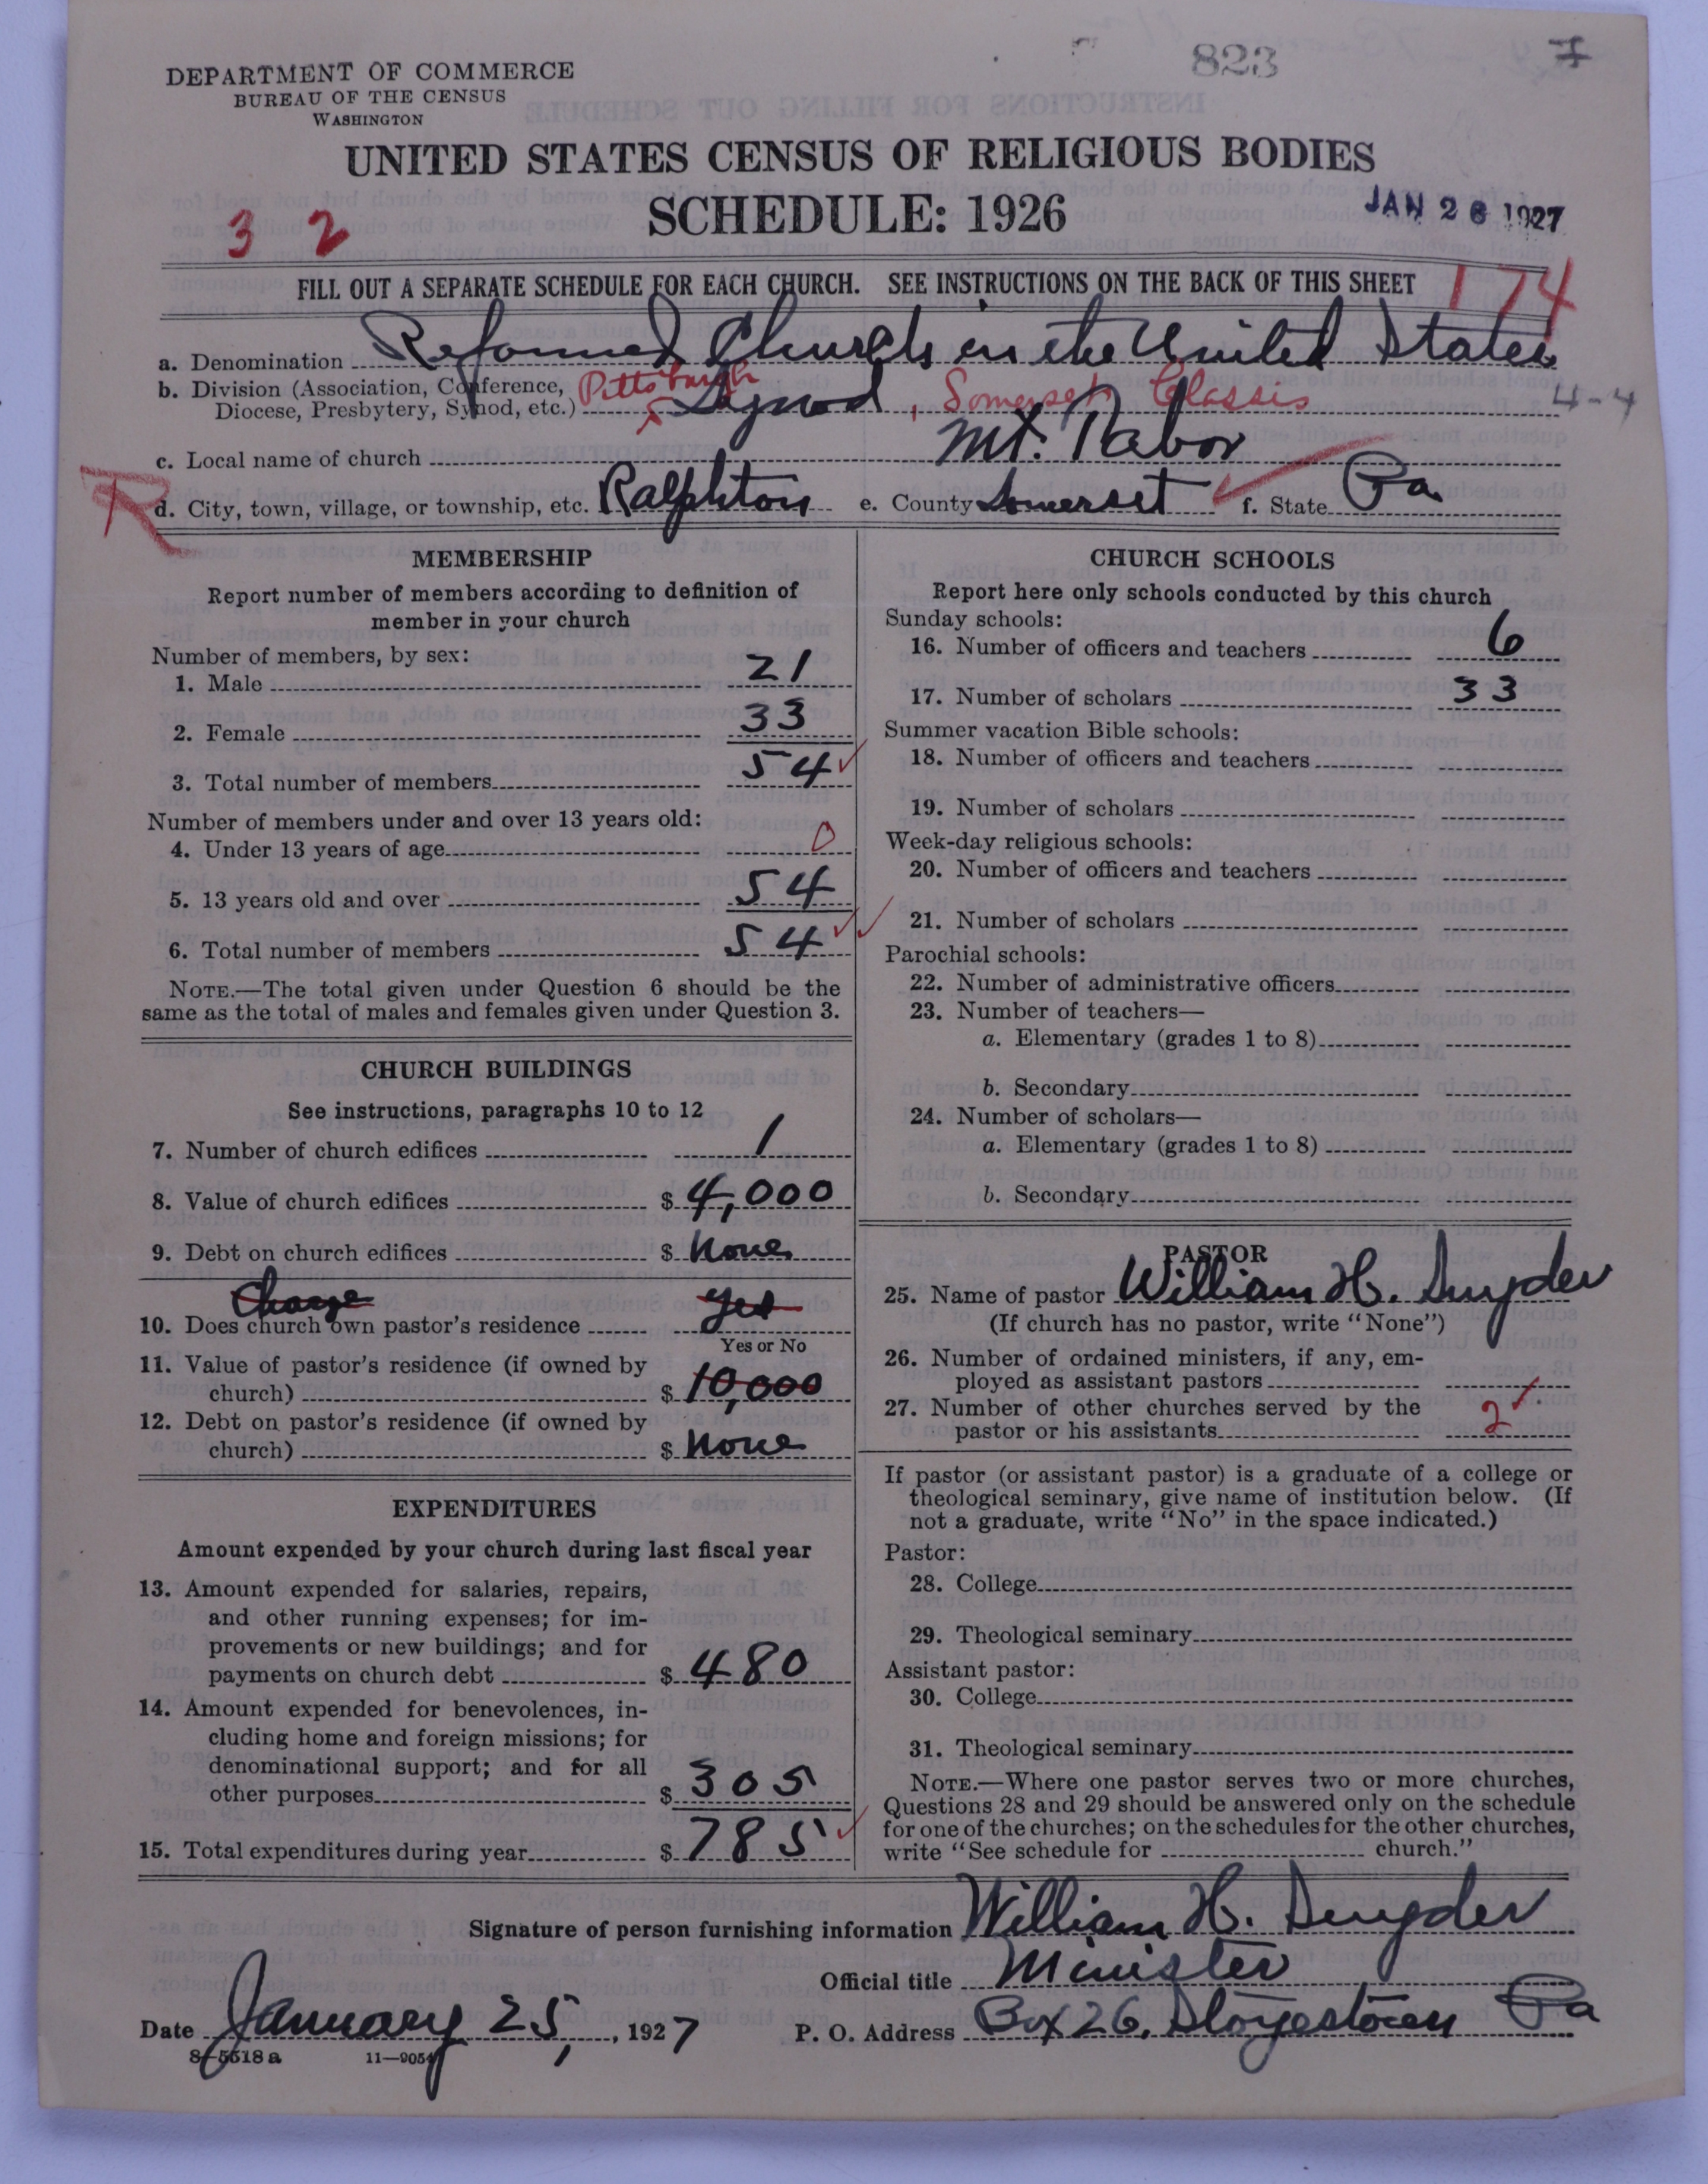 823
DEPARTMENT OF COMMERCE
BUREAU OF THE CENSUS
WASHINGTON
UNITED STATES CENSUS OF RELIGIOUS BODIES
SCHEDULE: 1926
JAN 26 1927
3 2
FILL OUT A SEPARATE SCHEDULE FOR EACH CHURCH. SEE INSTRUCTIONS ON THE BACK OF THIS SHEET
174
a. Denomination Reformed Church in the United States
b. Division (Association, Conference, Diocese, Presbytery, Synod, etc.) Pittsburgh Synod, Somerset Classis
4-4
c. Local name of church Mt. Tabor
R
d. City, town, village, or township, etc. Ralphton e. County Somerset f. State Pa
MEMBERSHIP
Report number of members according to definition of
member in your church
Number of members, by sex:
1. Male 21
2. Female 33
3. Total number of members 54
Number of members under and over 13 years old:
4. Under 13 years of age 0
5. 13 years old and over 54
6. Total number of members 54
NOTE.—The total given under Question 6 should be the
same as the total of males and females given under Question 3.
CHURCH BUILDINGS
See instructions, paragraphs 10 to 12
7. Number of church edifices 1
8. Value of church edifices $ 4,000
9. Debt on church edifices $ None
Charge
10. Does church own pastor's residence Yes
Yes or No
11. Value of pastor's residence (if owned by
church) $ 10,000
12. Debt on pastor's residence (if owned by
church) $ None
EXPENDITURES
Amount expended by your church during last fiscal year
13. Amount expended for salaries, repairs,
and other running expenses; for im-
provements or new buildings; and for
payments on church debt $ 480
14. Amount expended for benevolences, in-
cluding home and foreign missions; for
denominational support; and for all
other purposes $ 305
15. Total expenditures during year $ 785
CHURCH SCHOOLS
Report here only schools conducted by this church
Sunday schools:
16. Number of officers and teachers 6
17. Number of scholars 33
Summer vacation Bible schools:
18. Number of officers and teachers
19. Number of scholars
Week-day religious schools:
20. Number of officers and teachers
21. Number of scholars
Parochial schools:
22. Number of administrative officers
23. Number of teachers—
a. Elementary (grades 1 to 8)
b. Secondary
24. Number of scholars—
a. Elementary (grades 1 to 8)
b. Secondary
PASTOR
25. Name of pastor William H. Snyder
(If church has no pastor, write "None")
26. Number of ordained ministers, if any, em-
ployed as assistant pastors
27. Number of other churches served by the
pastor or his assistants 2
If pastor (or assistant pastor) is a graduate of a college or
theological seminary, give name of institution below. (If
not a graduate, write "No" in the space indicated.)
Pastor:
28. College
29. Theological seminary
Assistant pastor:
30. College
31. Theological seminary
NOTE.—Where one pastor serves two or more churches,
Questions 28 and 29 should be answered only on the schedule
for one of the churches; on the schedules for the other churches,
write "See schedule for church."
Signature of person furnishing information William H. Snyder
Official title Minister
Date January 25, 1927 P. O. Address Box 26, Stoyestown Pa
8-5518 a 11-9054